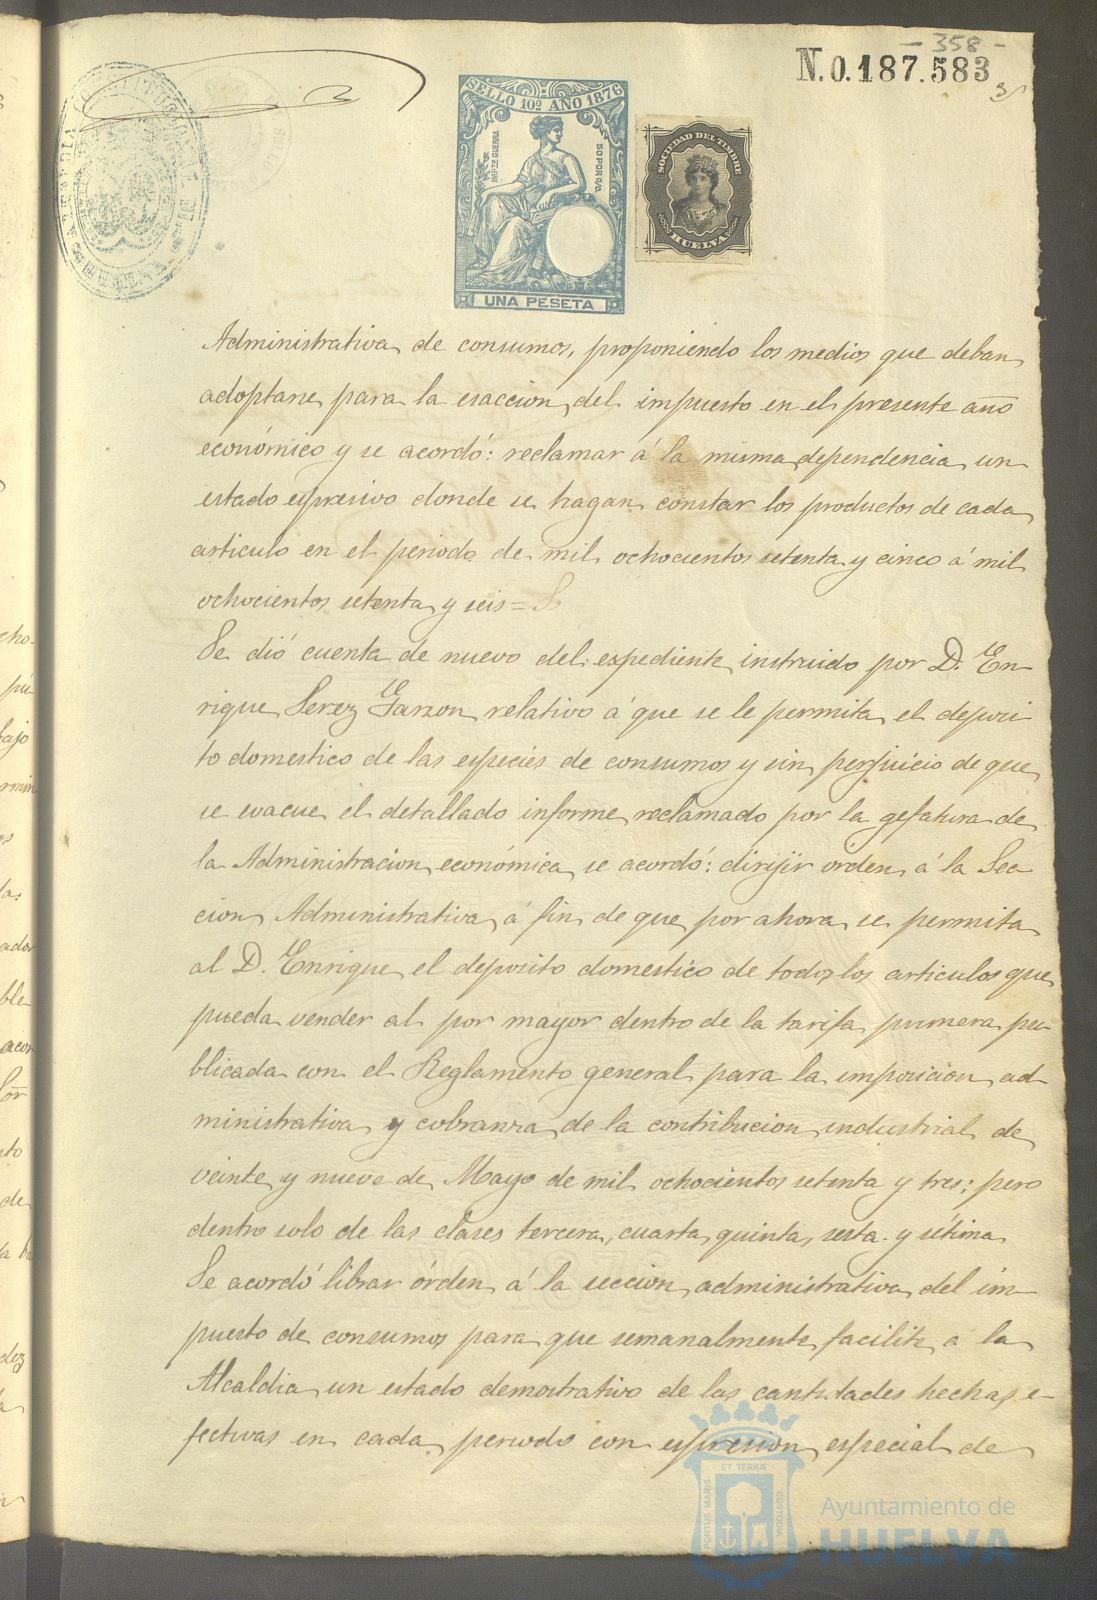 - 358 -
N.0.187.583
SELLO 10º AÑO 1876
IMPTO GUERRA
50 POR 0/0
UNA PESETA
SOCIEDAD DEL TIMBRE
HUELVA
Administrativa de consumos, proponiendo los medios que deban
adoptarse para la esaccion del impuesto en el presente año
económico y se acordó: reclamar á la misma dependencia un
estado espresivo donde se hagan constar los productos de cada
articulo en el periodo de mil ochocientos setenta y cinco á mil
ochocientos setenta y seis =
Se dió cuenta de nuevo del expediente instruido por D. En-
rique Perez Garzon relativo á que se le permita el deposi
to domestico de las especies de consumos y sin perjuicio de que
se evacue el detallado informe reclamado por la gefatura de
la Administracion económica se acordó: dirijir orden á la Sec
cion Administrativa á fin de que por ahora se permita
al D. Enrique el deposito domestico de todos los articulos que
pueda vender al por mayor dentro de la tarifa primera pu-
blicada con el Reglamento general para la imposicion ad-
ministrativa y cobranza de la contribucion industrial de
veinte y nueve de Mayo de mil ochocientos setenta y tres; pero
dentro solo de las clases tercera, cuarta, quinta, sesta y sétima
Se acordó librar órden á la seccion administrativa del im-
puesto de consumos para que semanalmente facilite á la
Alcaldia un estado demostrativo de las cantidades hechas e-
fectivas en cada periodo con espresion especial de
PORTUS MARIS ET TERRÆ CUSTODIA
Ayuntamiento de
HUELVA